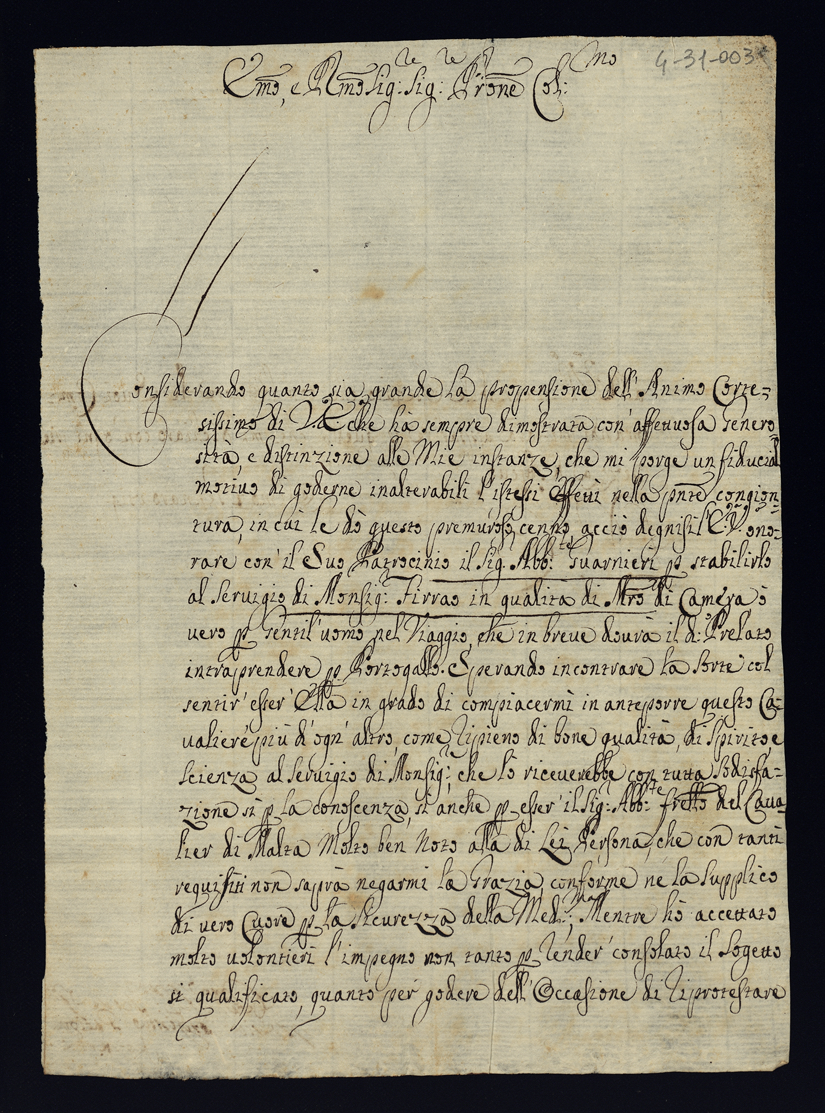 4-31-003r
Emo, e Rmo Sig:re Sig:re Prone Col:mo
Considerando quanto sia grande la propensione dell'Animo Corte=
sissimo di V.E. che hà sempre dimostrata con' affettuosa Genero=
sità, e distinzione alle Mie instanze, che mi porge un fiducial
motivo di goderne inalterabili l'istessi Effetti nella pnte congion=
tura, in cui le dò questo premuroso cenno, acciò degnisi l'E.V. ono=
rare con' il Suo Patrocinio il Sig: Abb:te Guarnieri p stabilirlo
al Servigio di Monsig: Firrao in qualità di Mro di Camera ò
vero p Gentil'uomo nel Viaggio, che in breve dovrà il d:o Prelato
intraprendere p Portogallo. Sperando incontrare la Sorte col
sentir' esser' Ella in grado di compiacermi in anteporre questo Ca=
valiere più d'ogn' altro, come ripieno di bone qualità, di Spirito e
Scienza al Servigio di Monsig:re, che lo riceverebbe con tutta Sodisfa=
zione sì p la conoscenza, sì anche p esser' il Sig: Abb:te frello del Cava=
lier di Malta Molto ben Noto alla di Lei Persona, che con tanti
requisiti non saprà negarmi la Grazia, conforme ne la Supplico
di vero Cuore p la Sicurezza della Med:ma, Mentre hò accettato
molto volontieri l'impegno non tanto p render' consolato il Sogetto
sì qualificato, quanto per godere dell'Occasione di riprotestare